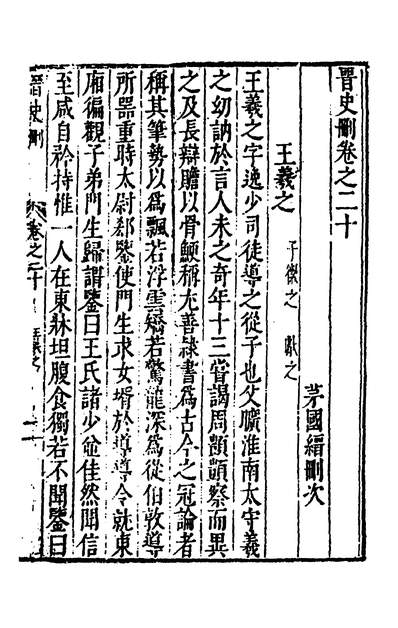 晉史刪卷之二十
茅國縉刪次
王羲之 子徽之 獻之
王羲之字逸少司徒導之從子也父曠淮南太守羲
之幼訥於言人未之奇年十三嘗謁周顗顗察而異
之及長辯贍以骨鯁稱尤善隸書爲古今之冠論者
稱其筆勢以爲飄若浮雲矯若驚龍深爲從伯敦導
所器重時太尉郄鑒使門生求女壻於導導令就東
廂徧觀子弟門生歸謂鑒曰王氏諸少並佳然聞信
至咸自矜持惟一人在東牀坦腹食獨若不聞鑒曰
晉史刪 卷之二十 王羲之 一